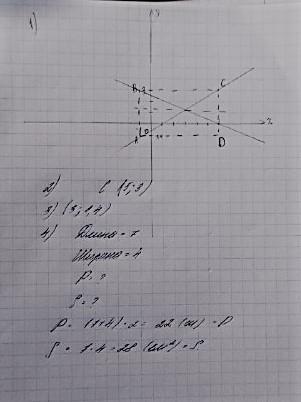 1)
y
B 3 C
x
A D
2) C (5;3)
3) (3;1,4)
4) Длина = 7
Ширина = 4
P = ?
S = ?
P = (7+4)·2 = 22 (см) - P
S = 7·4 = 28 (см²) - S